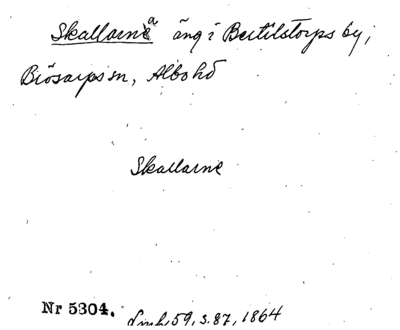 Skallarna äng i Bertilstorps by,
Brösarps sn, Albo hd
Skallarne
Nr 5304. Lmh, 59, s. 87, 1864